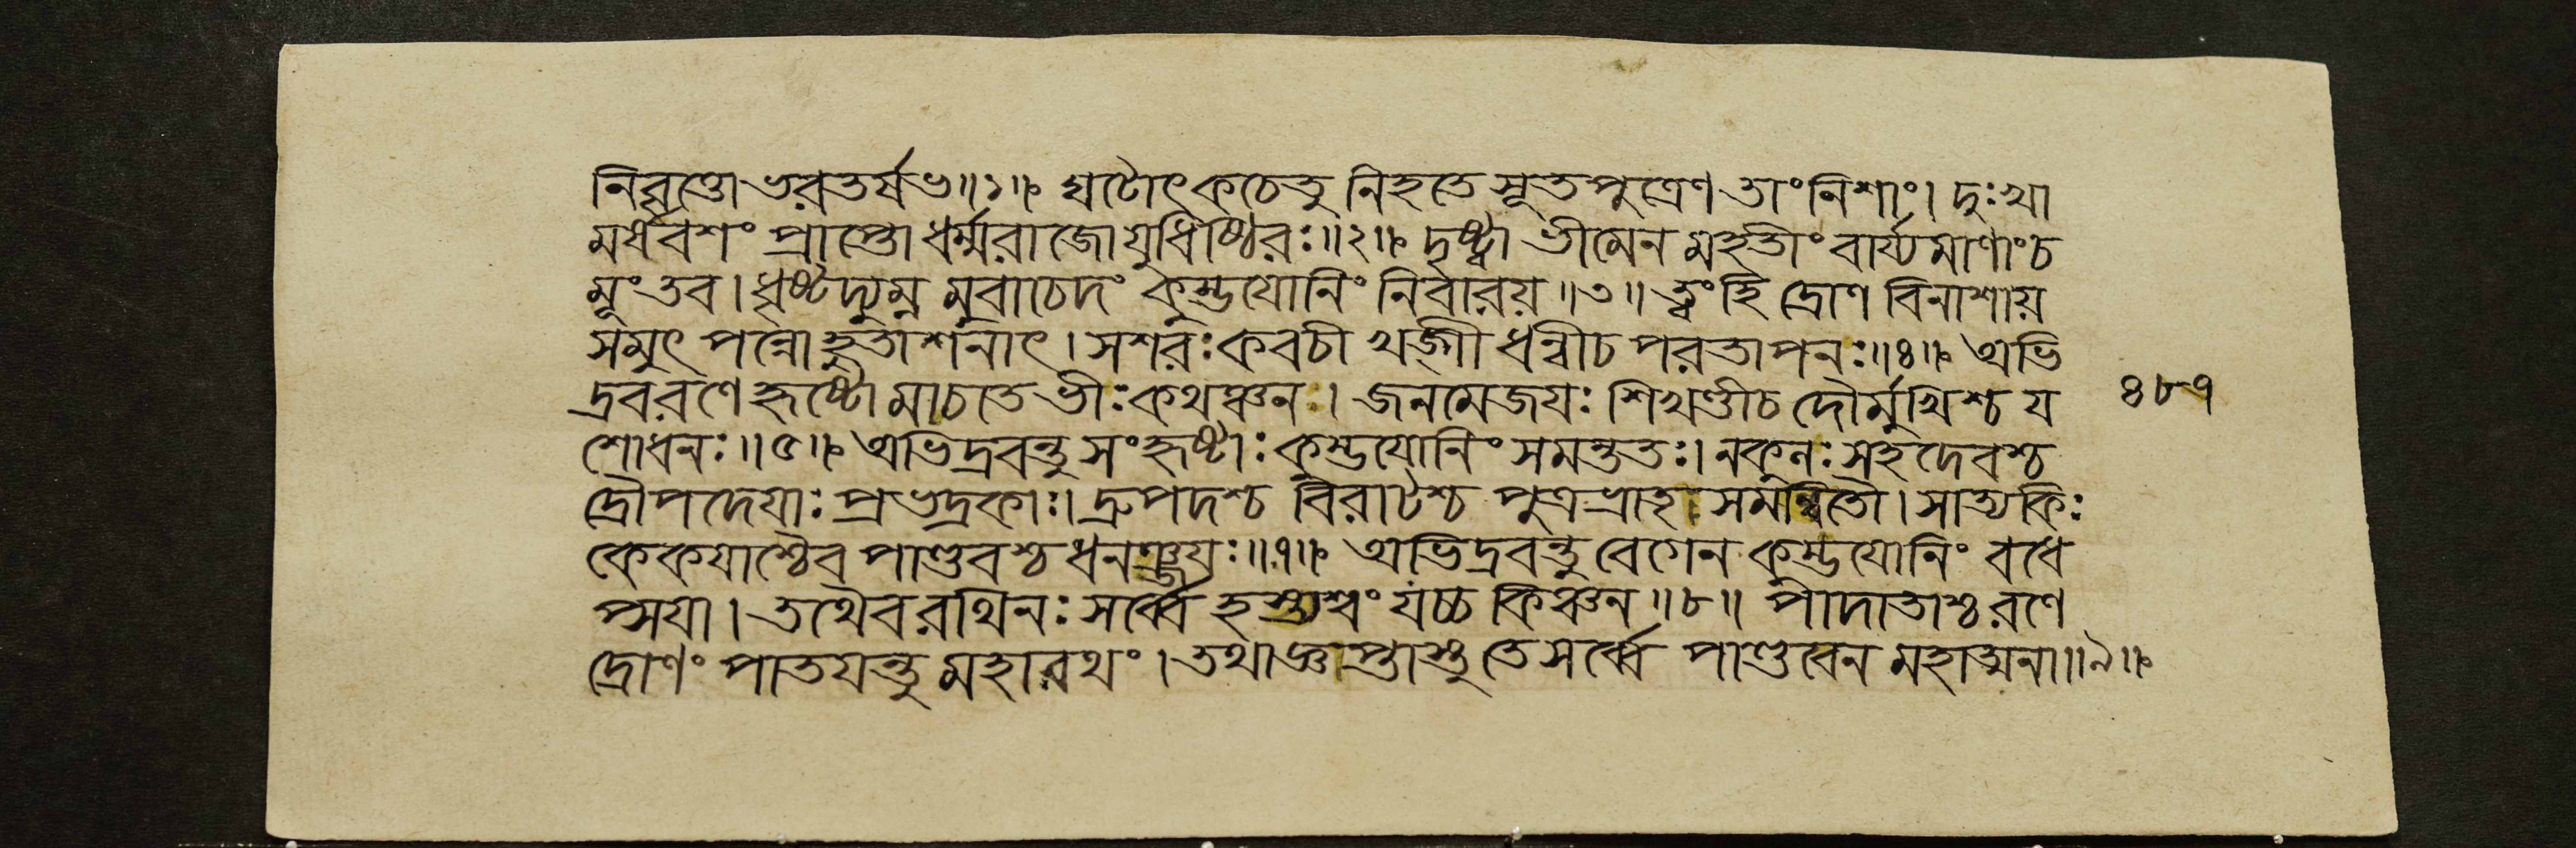 নিবৃত্তো ভরতর্ষভ॥১॥ ঘটোৎকচেতু নিহতে সূতপুত্রেণ তাং নিশাং। দুঃখা
মর্ষবশং প্রাপ্তো ধর্ম্মরাজো যুধিষ্ঠিরঃ॥২॥ দৃষ্ট্বা ভীমেন মহতীং বার্য্যমাণাং চ
মূং তব। ধৃষ্টদ্যুম্ন মুবাচেদং কুম্ভযোনিং নিবারয়॥৩॥ ত্বং হি দ্রোণ বিনাশায়
সমুৎ পন্নো হুতাশনাৎ। সশরঃ কবচী খড়্গী ধন্বী চ পরতাপনঃ॥৪॥ অভি
দ্রবরণে হৃষ্টো মাচাত ভীঃ কথঞ্চনঃ। জনমেজয়ঃ শিখণ্ডীচ দৌর্মুখিশ্চ য
শোধনঃ॥৫॥ অভিদ্রবন্তু সংহৃষ্টাঃ কুম্ভযোনিং সমন্ততঃ। নকুলঃ সহদেবশ্চ
দ্রৌপদেয়াঃ প্রভদ্রকাঃ। দ্রুপদশ্চ বিরাটশ্চ পুত্রভ্রাতৃ সমন্বিতৌ। সাত্যকিঃ
কেকয়াশ্চৈব পাণ্ডবশ্চ ধনঞ্জয়ঃ॥৭॥ অভিদ্রবন্তু বেগেন কুম্ভযোনিং বধে
প্সয়া। তথৈব রথিনঃ সর্ব্বে হস্ত্যশ্বং যচ্চ কিঞ্চন॥৮॥ পাদাতাশ্চ রণে
দ্রোণং পাতয়ন্তু মহারথং। তথাজ্ঞপ্তাস্তু তে সর্ব্বে পাণ্ডবেন মহাত্মনা॥৯॥
৪৮৭